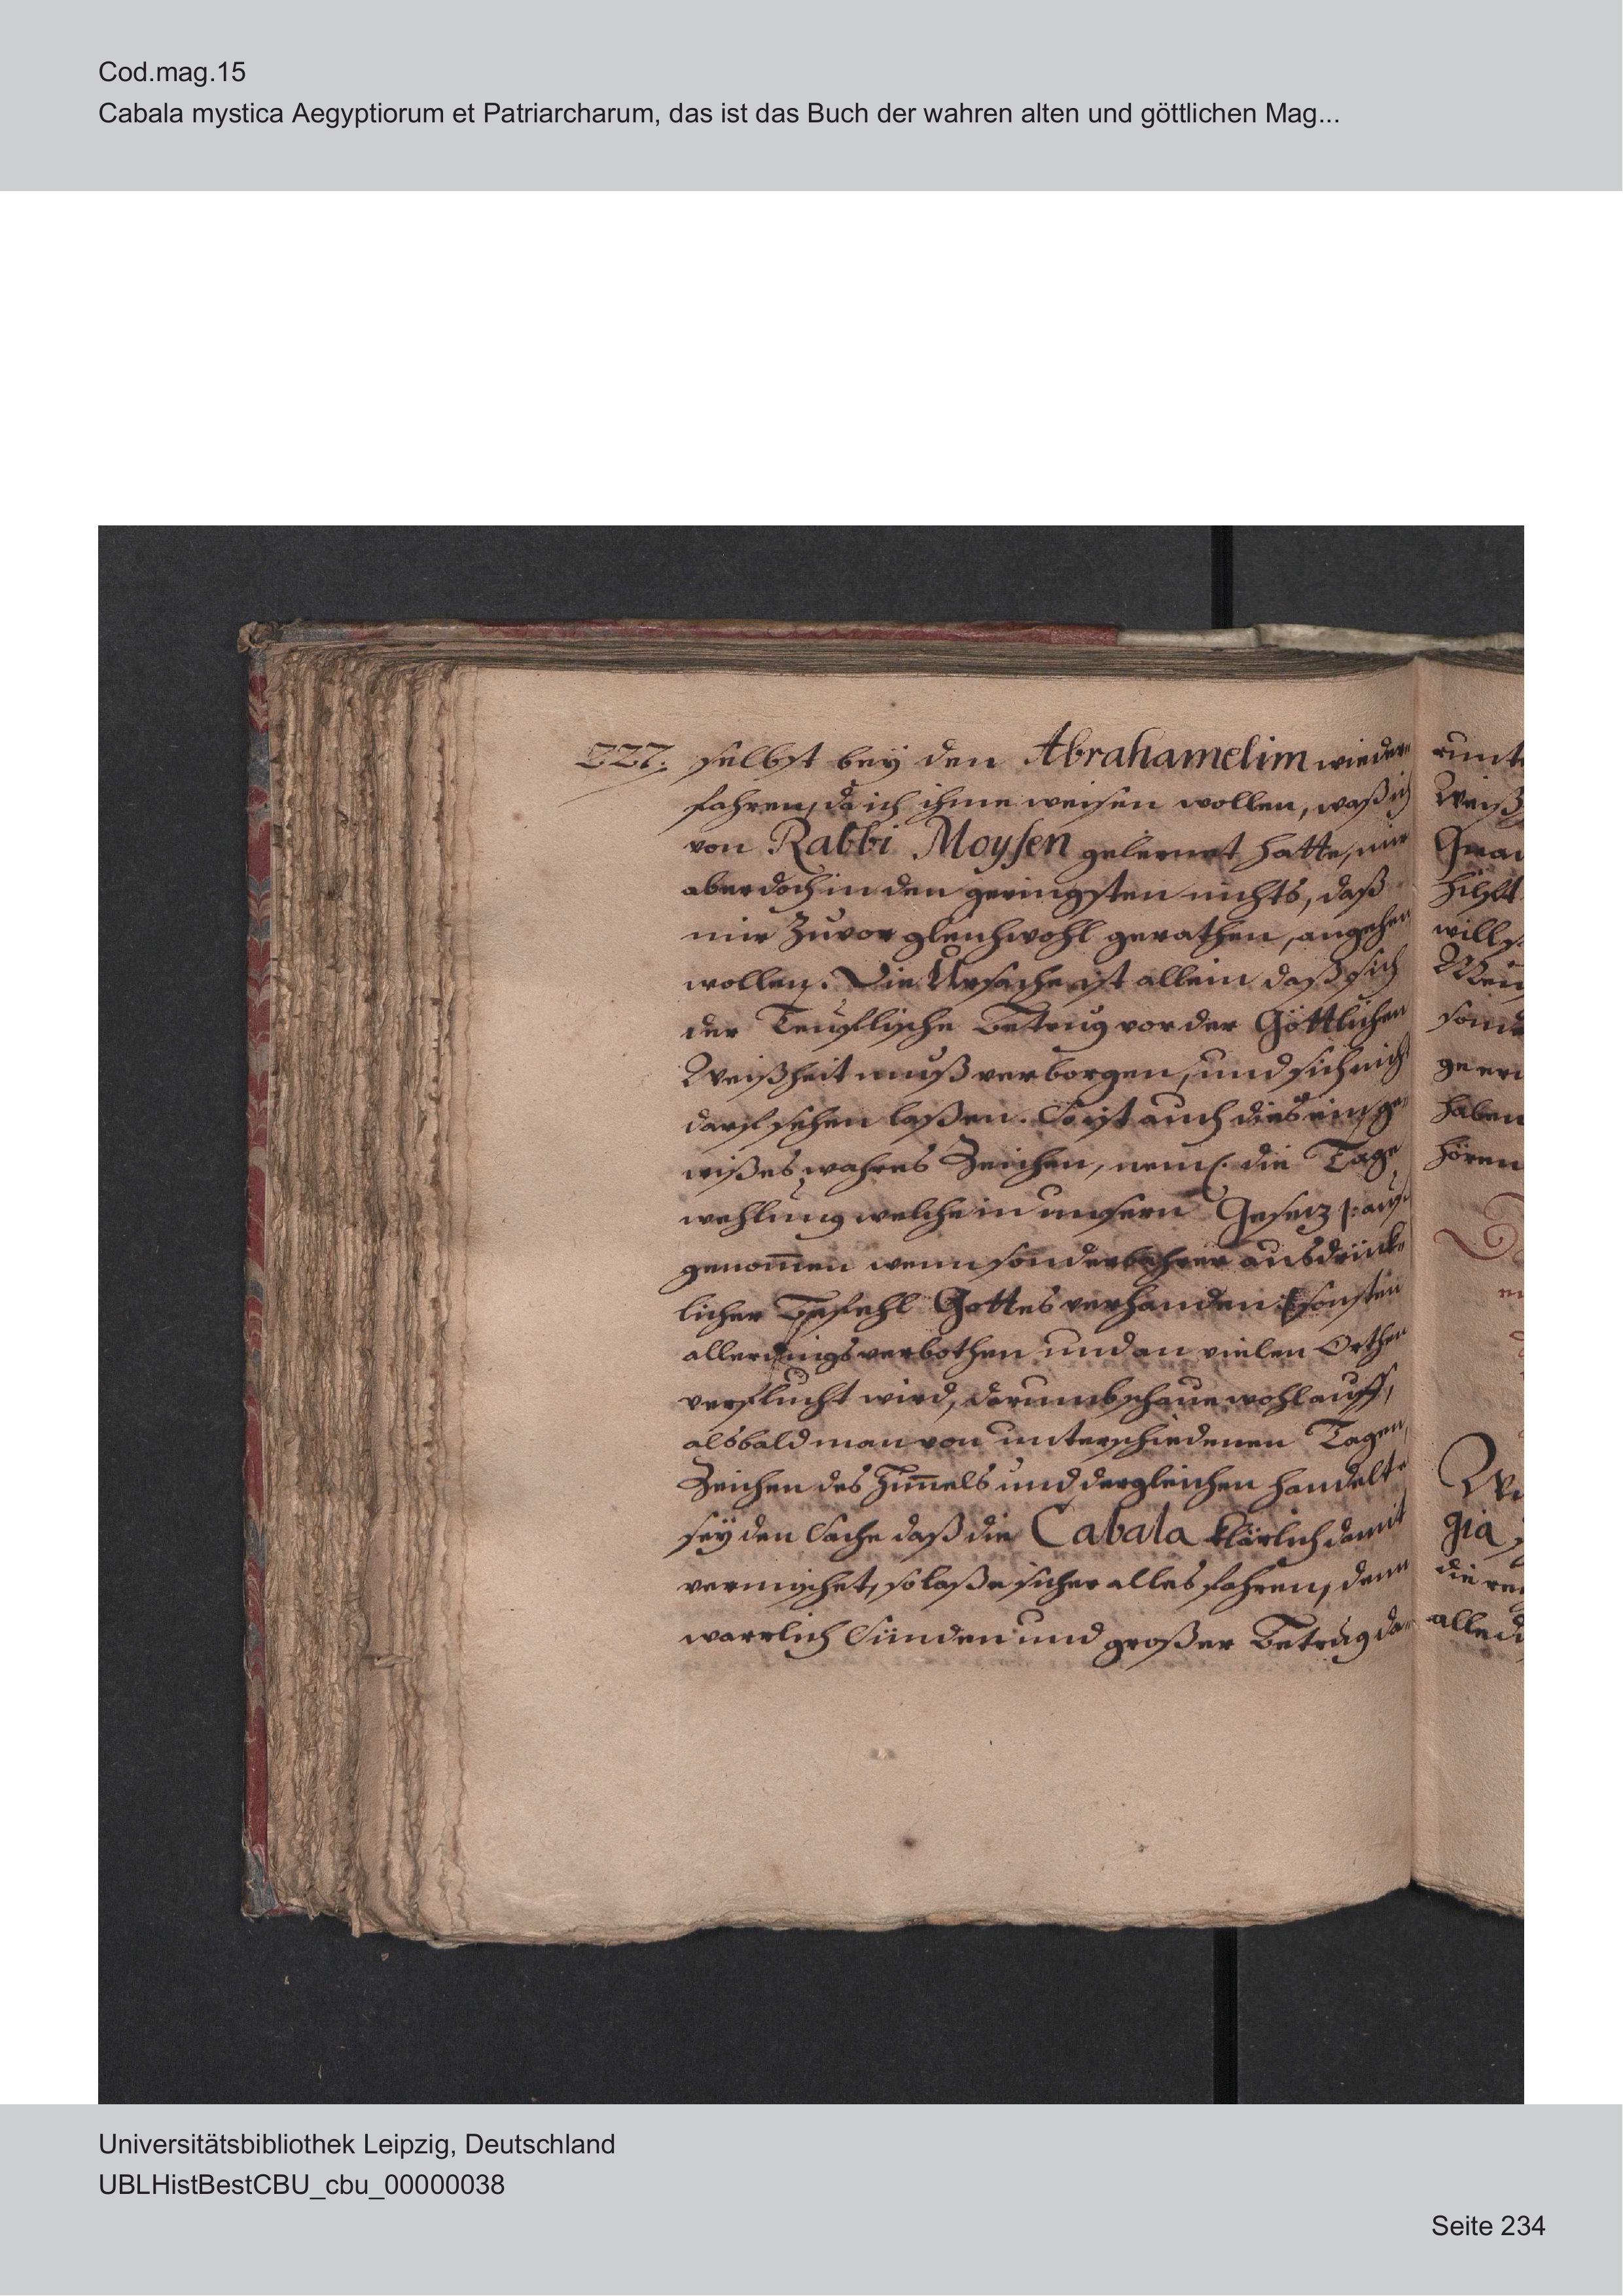 Cod.mag.15
Cabala mystica Aegyptiorum et Patriarcharum, das ist das Buch der wahren alten und göttlichen Mag...
227. selbst bey den Abrahamelim wieder
fahren, da ich ihme weisen wollen, waß ich
von Rabbi Moysen gelernet hatte, mir
aber doch in den geringsten nichts, daß
mir Zuvor gleichwohl gerathen, angehen
wollen. Die Ursache ist allein daß sich
der Teuflische Betrug vor der Göttlichen
Weißheit muß verborgen, und sich nicht
darf sehen laßen. So ist auch dies ein ge
wißes, wahres Zeichen, neml. die Tage
wehlung welche in unsern Gesetz |: auß
genom̄en wenn sonderbahrer ausdrück
licher Befehl Gottes verhanden :| sonsten
allerdings verbothen und an vielen Orthen
verflucht wird, darumb schaue wohl auff,
alsbald man von unterschiedenen Tagen,
Zeichen des Him̄els und dergleichen handelt
sey den Sache daß die Cabala klärlich damit
vermischet, so laße sicher alles fahren, denn
warrlich Sünden und großer Betrug da
runt
Weiß
hilft
will
sond
haben
hören
gia
die
alle
Universitätsbibliothek Leipzig, Deutschland
UBLHistBestCBU_cbu_00000038
Seite 234